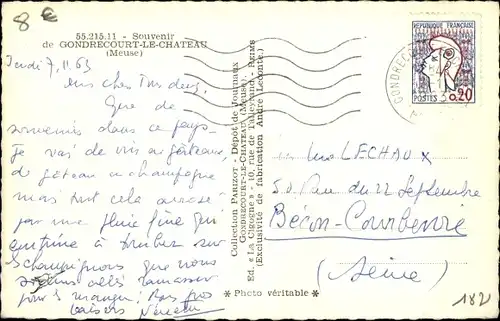 8 €
55.215.11 - Souvenir
de GONDRECOURT-LE-CHATEAU
(Meuse)
Jeudi 7.11.63
mes chers Tous deux,
Que de
souvenirs dans ce pays-
Je vais de vin au gâteau,
de gâteau au champagne
mais tout cela arrosé
par une pluie fine qui
continue à tomber sur
champignons que nous
allés ramasser
pour manger. Bons gros
baisers
Collection PARIZOT - Dépôt de Journaux
GONDRECOURT-LE-CHATEAU (Meuse).
Ed. « La Cigogne » - 10, rue de Talleyrand, REIMS
(Exclusivité de fabrication André Leconte.)
* Photo véritable *
REPUBLIQUE FRANÇAISE
POSTES 0,20
GONDRECOURT
LECHAUX
50 Rue du 22 Septembre
Bécon-Courbevoie
(Seine)
182